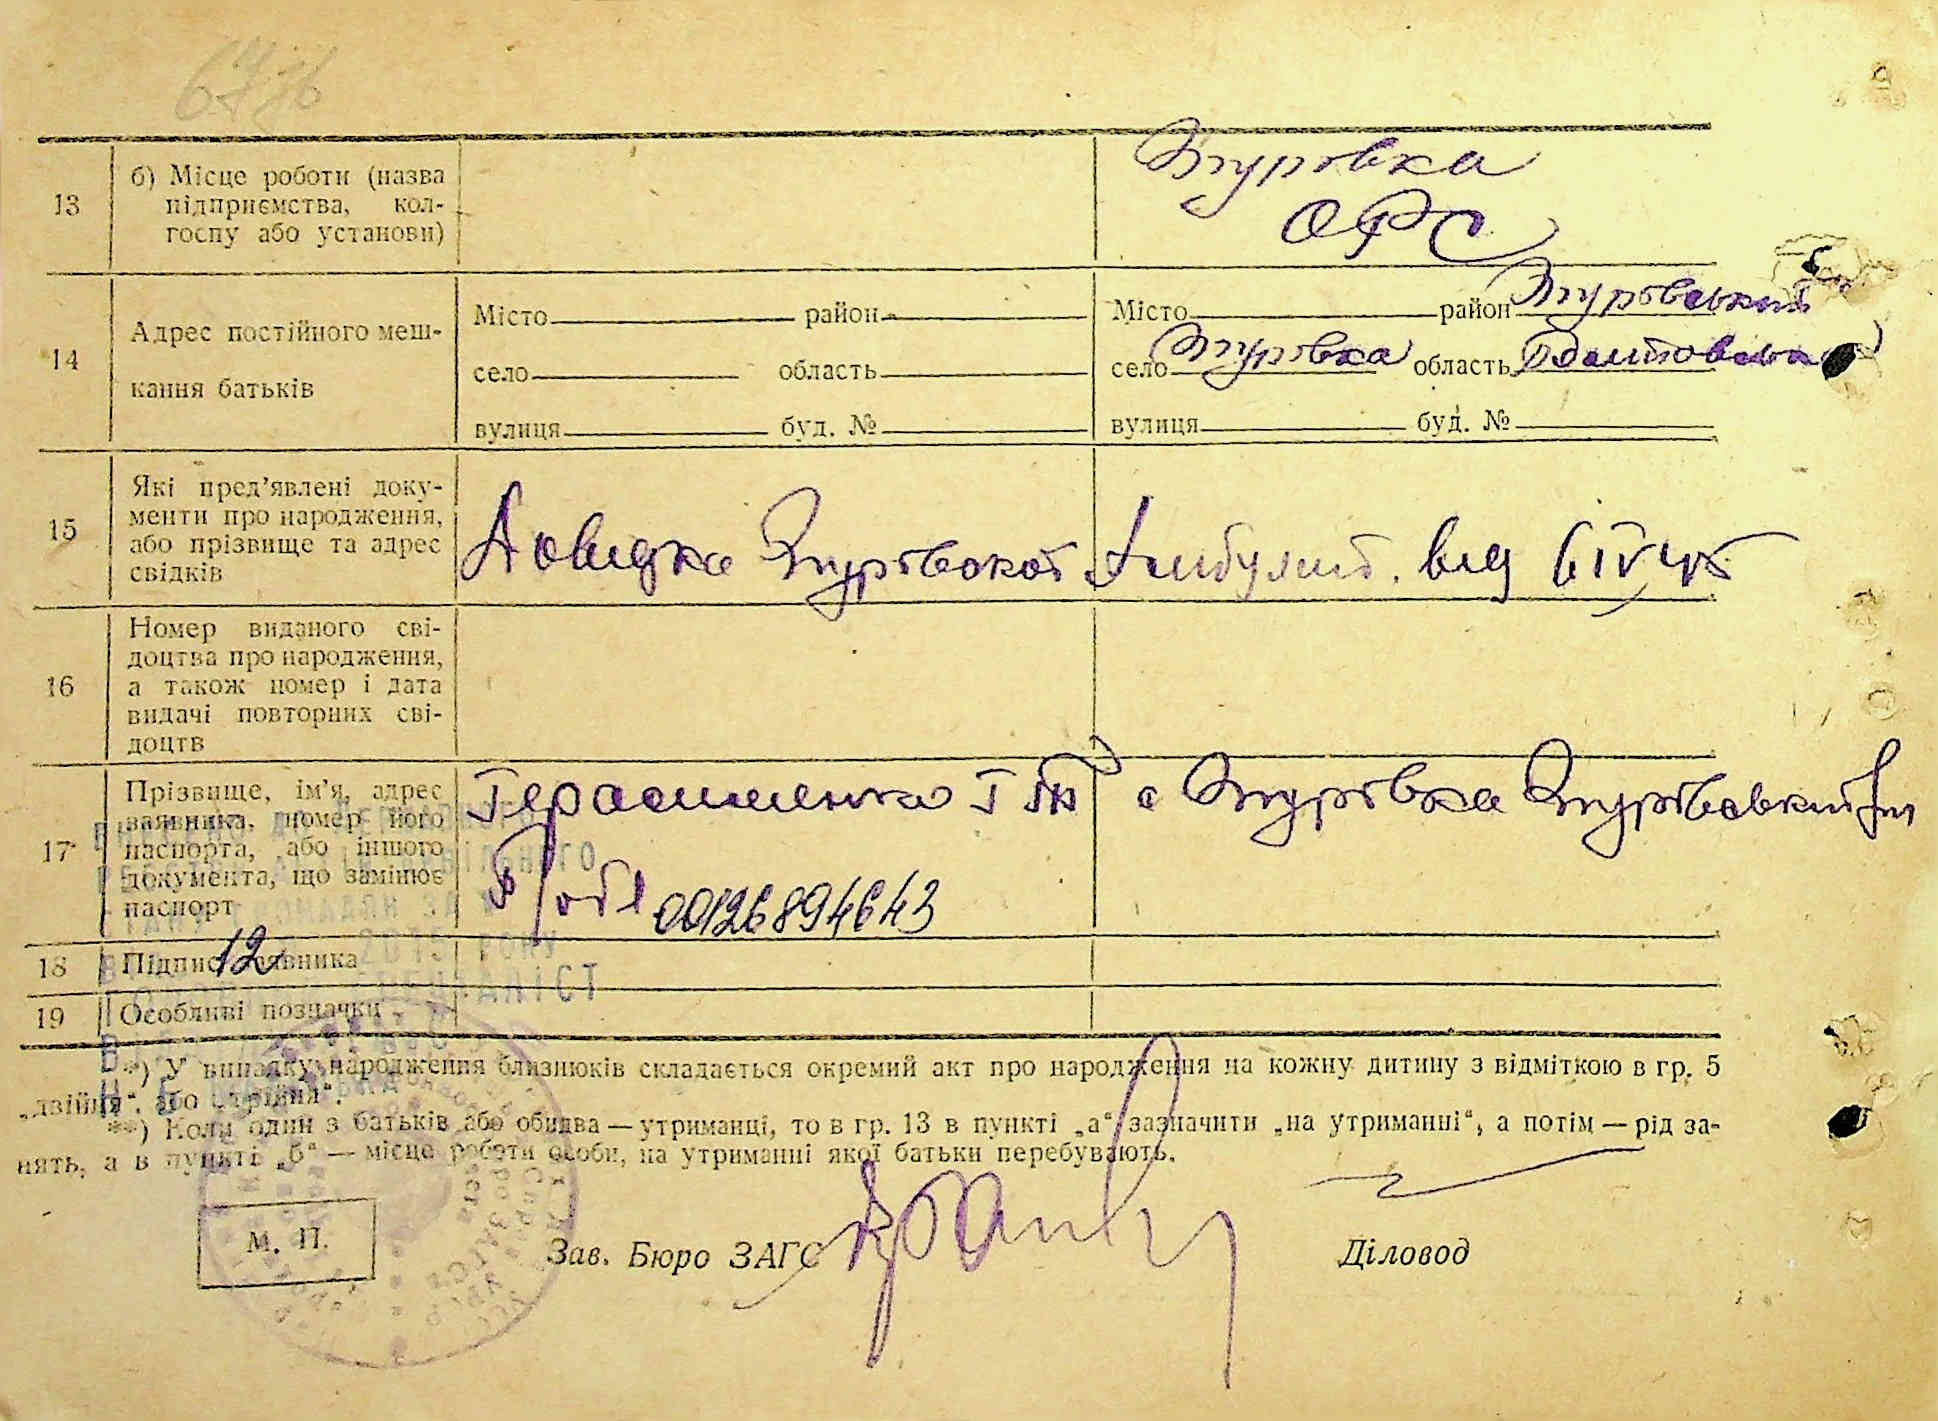 13
б) Місце роботи (назва
підприємства, кол-
госпу або установи)
Згурівка
ОФС
14
Адрес постійного меш-
кання батьків
Місто район
село область
вулиця буд. №
Місто район Згурівський
село Згурівка область Полтовська
вулиця буд. №
15
Які пред’явлені доку-
менти про народження,
або прізвище та адрес
свідків
Довидка Згурівської Амбулат. від 6 IV 45
16
Номер виданого сві-
доцтва про народження,
а також номер і дата
видачі повторних сві-
доцтв
17
Прізвище, ім’я, адрес
заявника, номер його
паспорта, або іншого
документа, що замінює
паспорт
Герасименко Г с Згурівка Згурівський
00126894643
18
Підпис заявника
12
2015 РОКУ
19
Особливі позначки
СПЕЦІАЛІСТ
*) У випадку народження близнюків складається окремий акт про народження на кожну дитину з відміткою в гр. 5
„двійня“, або „трійня“.
**) Коли один з батьків або обидва — утриманці, то в гр. 13 в пункті „а“ зазначити „на утриманні“, а потім — рід за-
нять, а в пункті „б“ — місце роботи особи, на утриманні якої батьки перебувають.
М. П.
Зав. Бюро ЗАГС
Діловод